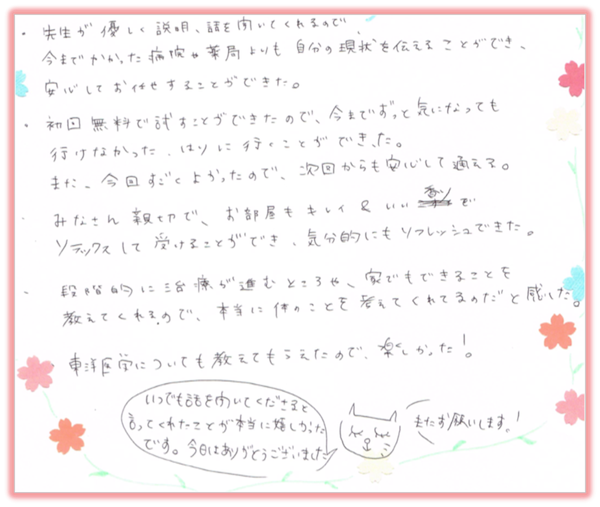 ・先生が優しく説明、話を聞いてくれるので、
今までかかった病院や薬局よりも自分の現状を伝えることができ、
安心してお任せすることができた。
・初回無料で試すことができたので、今までずっと気になっても
行けなかった、はりに行くことができた。
また、今回すごくよかったので、次回からも安心して通える。
・みなさん親切で、お部屋もキレイ&いい香りで
リラックスして受けることができ、気分的にもリフレッシュできた。
・段階的に治療が進むところや、家でもできることを
教えてくれるので、本当に体のことを考えてくれてるのだと感じた。
・東洋医学についても教えてもらえたので、楽しかった!。
いつでも話を聞いてくださると
言ってくれたことが本当に嬉しかった
です。今日はありがとうございました
またお願いします。!